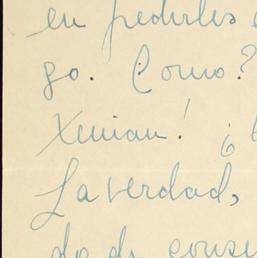 en pedirles
go. Como?
Xenian! ¡
La verdad,
do de conse